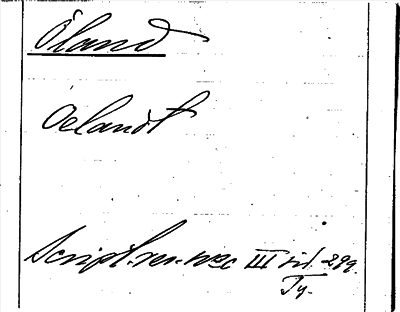 Öland
Oelandt
Script. rer. svec III sid. 299.
Ty.